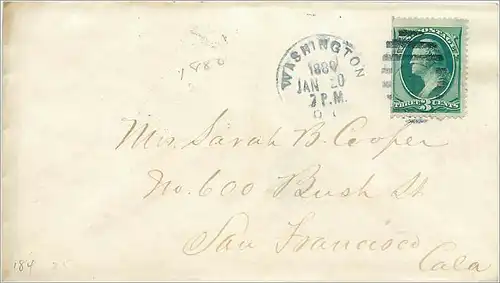 1880
WASHINGTON
1880
JAN 20
7 P.M.
U.S. POSTAGE
THREE 3 CENTS
Mrs. Sarah B. Cooper
No. 600 Bush St
San Francisco
Cala
184